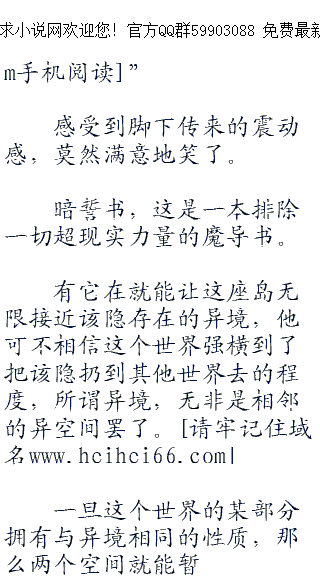 求小说网欢迎您! 官方QQ群59903088 免费最新
m手机阅读]”
感受到脚下传来的震动
感，莫然满意地笑了。
暗誓书，这是一本排除
一切超现实力量的魔导书。
有它在就能让这座岛无
限接近该隐存在的异境，他
可不相信这个世界强横到了
把该隐扔到其他世界去的程
度，所谓异境，无非是相邻
的异空间罢了。[请牢记住域
名www.hcihci66.com|
一旦这个世界的某部分
拥有与异境相同的性质，那
么两个空间就能暂